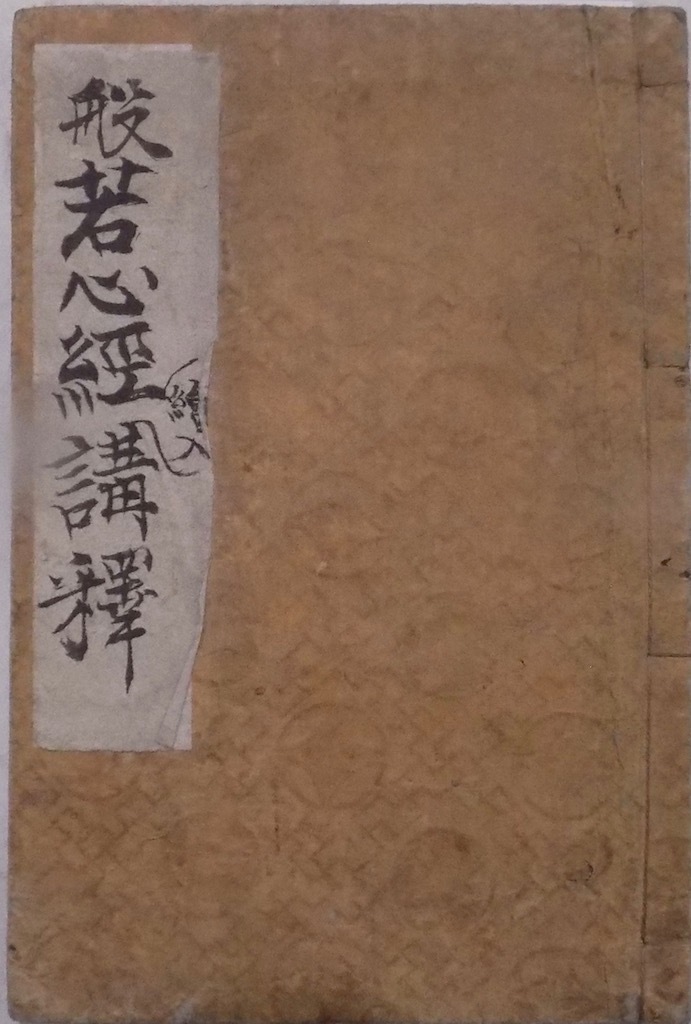 般若心經講釋
繪入